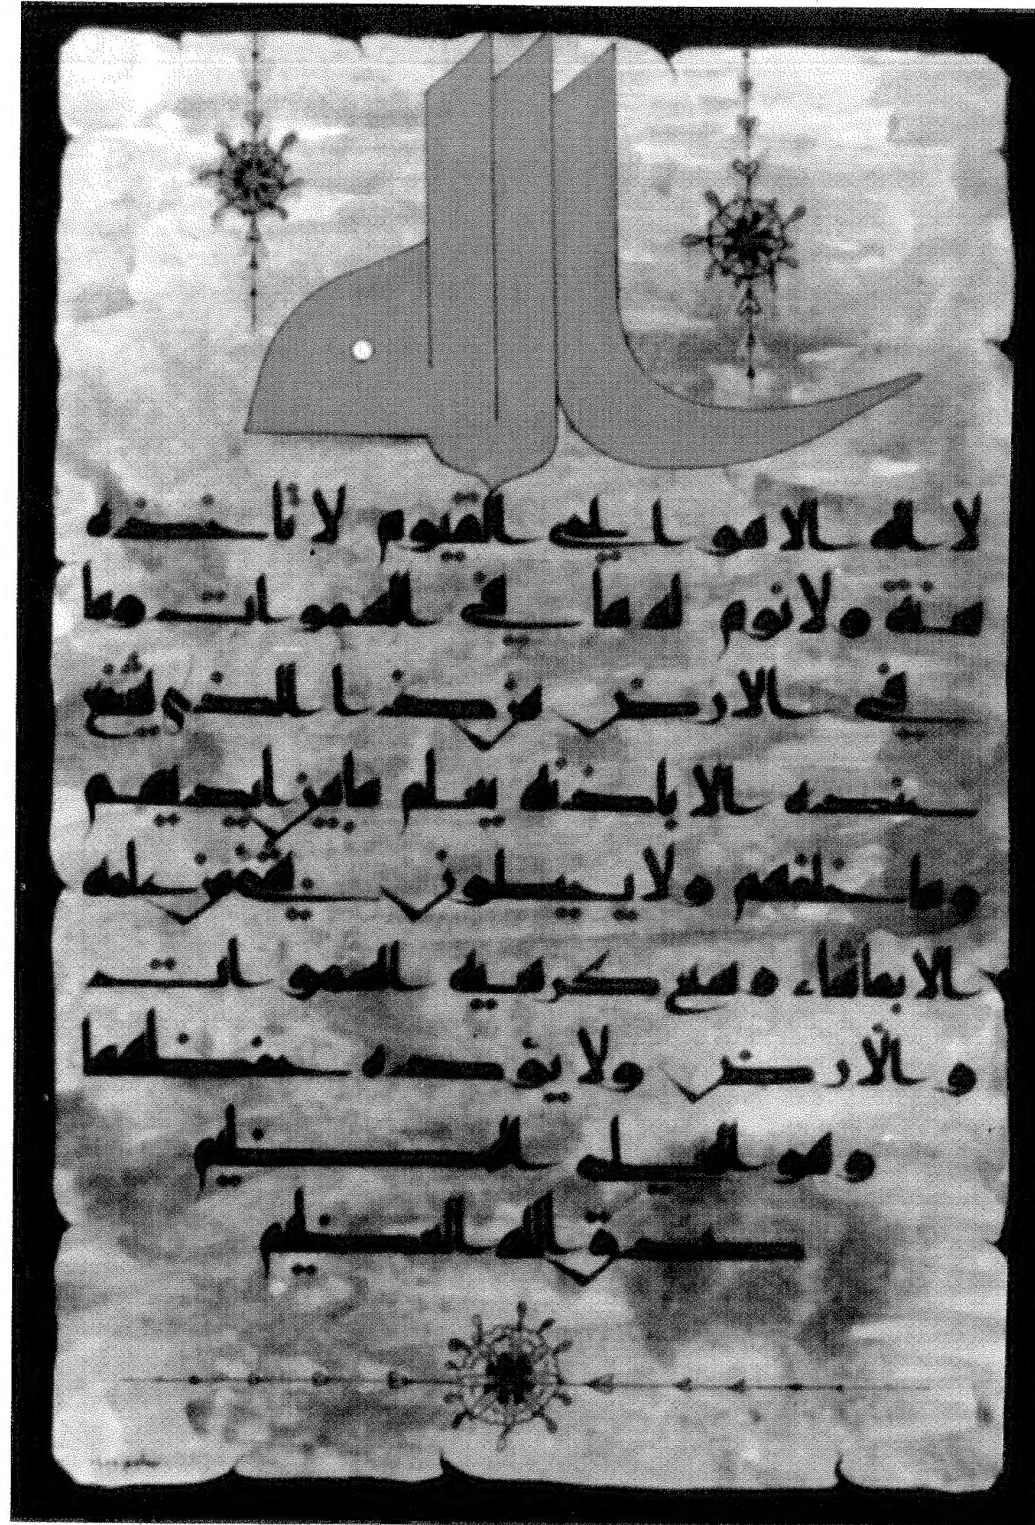 الله
لا اله الا هو الحي القيوم لا تأخذه
سنة ولا نوم له ما في السموات وما
في الارض من ذا الذي يشفع
عنده الا باذنه يعلم ما بين ايديهم
وما خلفهم ولا يحيطون بشيء من علمه
الا بما شاء وسع كرسيه السموات
والأرض ولا يؤده حفظهما
وهو العلي العظيم
صدق الله العظيم